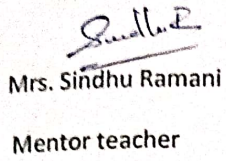 Sindhu R
Mrs. Sindhu Ramani
Mentor teacher